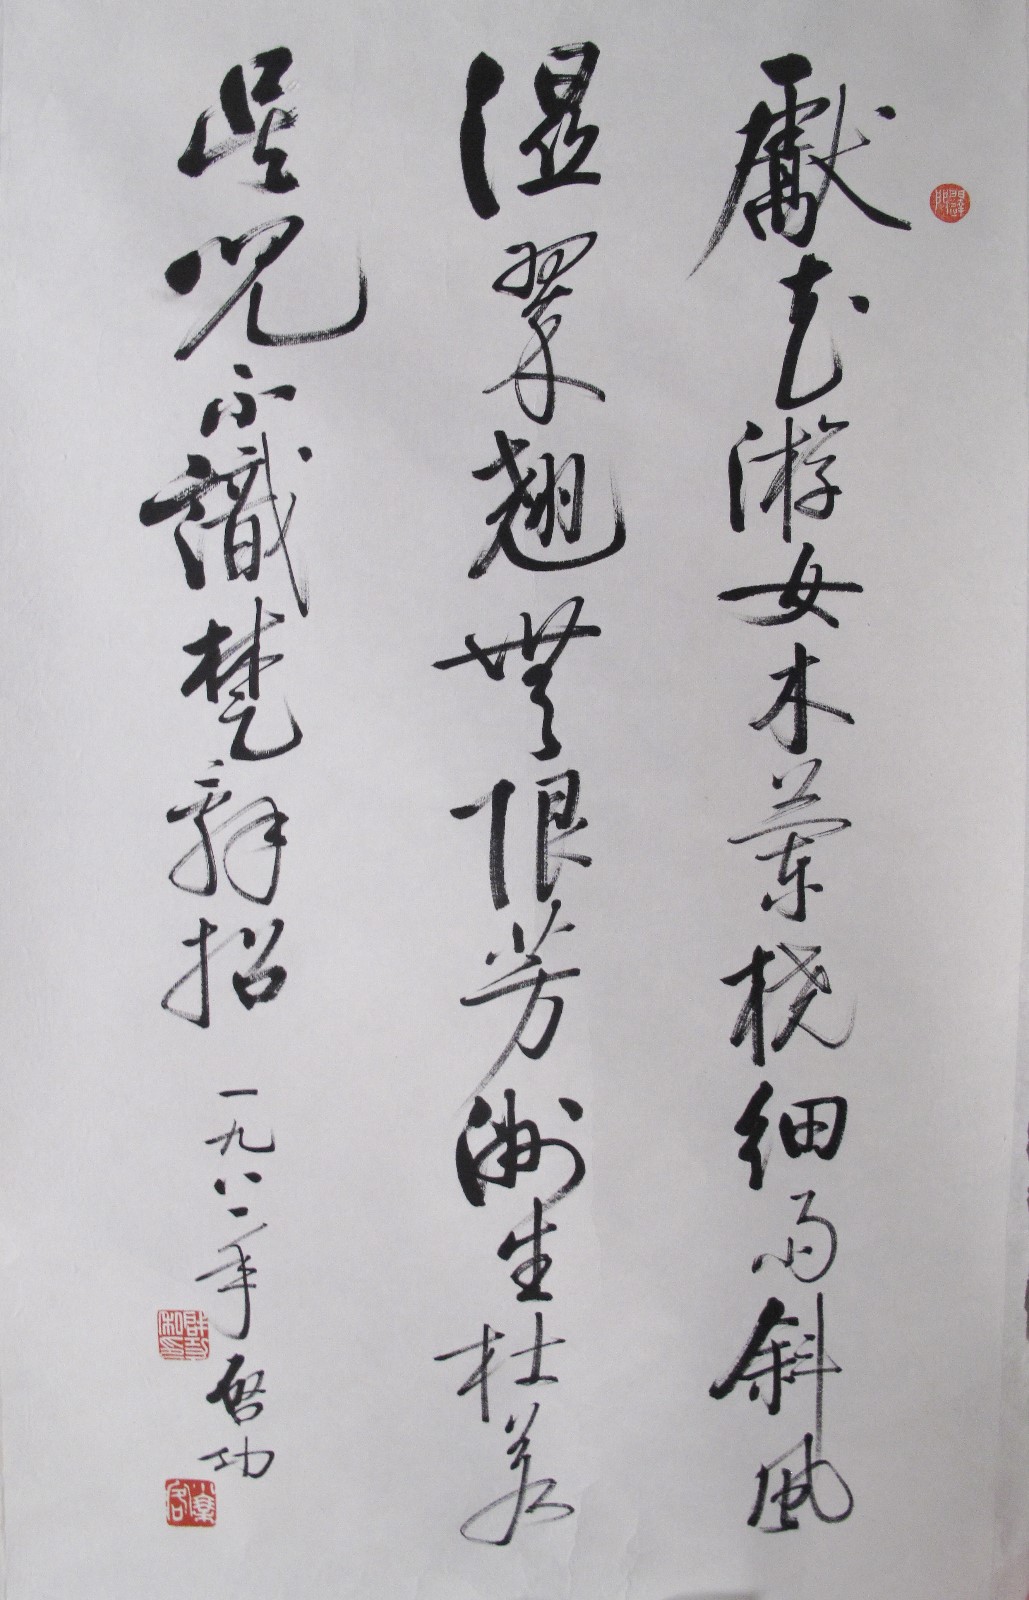 獻花游女木蘭橈細雨斜風
湿翠翹無限芳洲生杜若
吳兒不識楚辭招
一九八一年
啓功